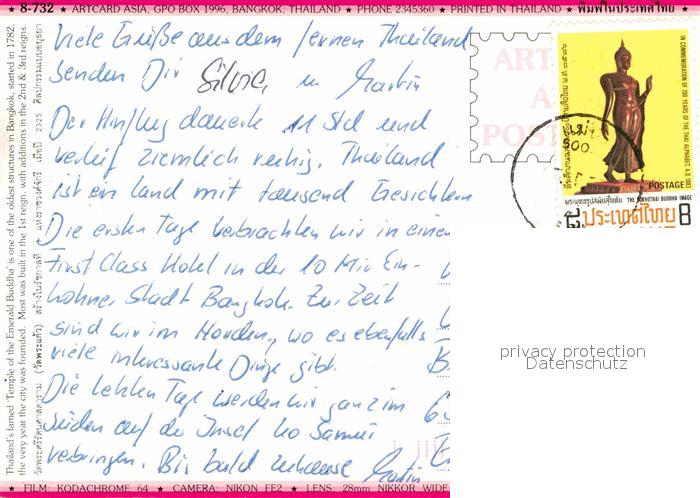 ★ 8-732 ★ ARTCARD ASIA, GPO BOX 1996, BANGKOK, THAILAND ★ PHONE 2345360 ★ PRINTED IN THAILAND ★ พิมพ์ในประเทศไทย ★
Thailand's famed 'Temple of the Emerald Buddha' is one of the oldest structures in Bangkok, started in 1782,
the very year the city was founded. Most was built in the 1st reign, with additions in the 2nd & 3rd reigns.
Viele Grüße aus dem fernen Thailand
senden Dir Silvia u. Martin
Der Hinflug dauerte 11 Std und
verlief ziemlich ruhig. Thailand
ist ein Land mit tausend Gesichtern
Die ersten Tage verbrachten wir in einem
First Class Hotel in der 10 Mio Ein-
wohner Stadt Bangkok. Zur Zeit
sind wir im Norden, wo es ebenfalls
viele interessante Dinge gibt.
Die letzten Tage werden wir ganz im
Süden auf der Insel Ko Samui
verbringen. Bis bald zuhause Martin
ART
A
POST
IN COMMEMORATION OF 700 YEARS OF THE THAI ALPHABET A.D. 1983
POSTAGE
พระพุทธรูปสมัยสุโขทัย THE SUKHOTHAI BUDDHA IMAGE
๘ ประเทศไทย 8
privacy protection
Datenschutz
★ FILM: KODACHROME 64 ★ CAMERA: NIKON FE2 ★ LENS: 28mm NIKKOR WIDE